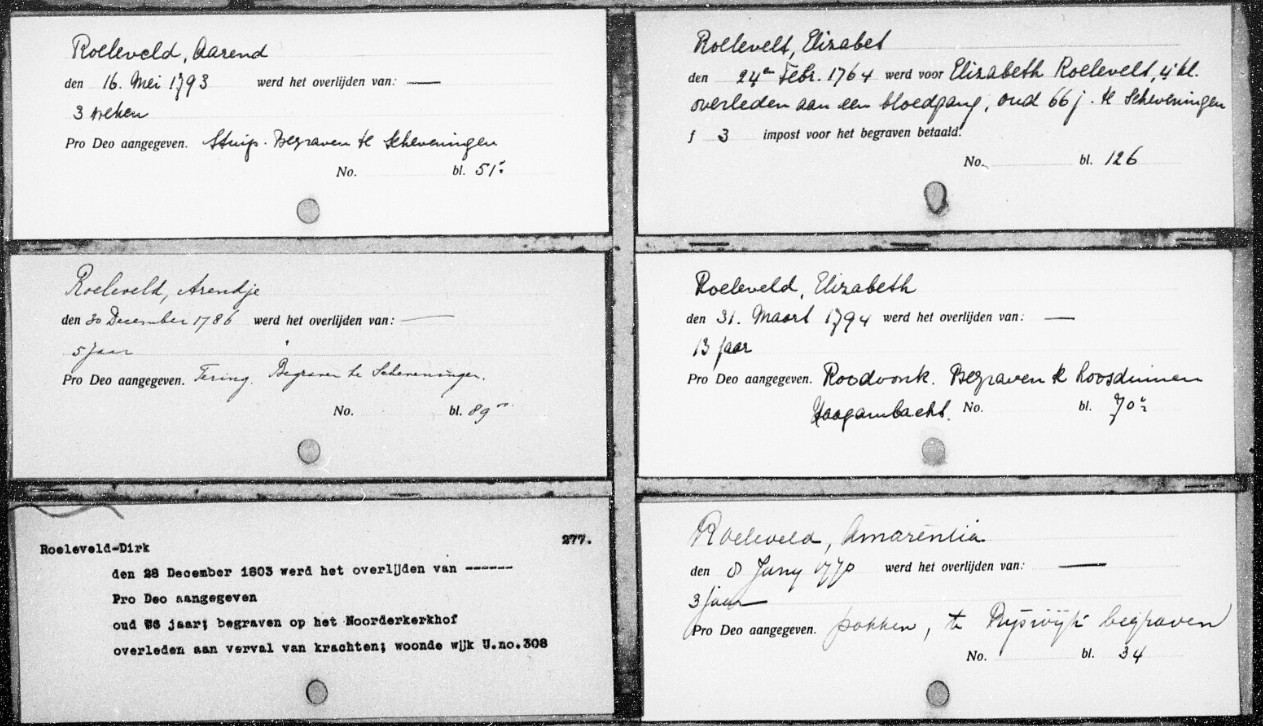 Roeleveld, Aarend
den 16. Mei 1793 werd het overlijden van: —
3 weken
Pro Deo aangegeven. Stuip. Begraven te Scheveningen
No. bl. 51
Roeleveld, Arendje
den 30 December 1786 werd het overlijden van: —
5 jaar
Pro Deo aangegeven. Tering. Begraven te Scheveningen.
No. bl. 89
Roeleveld-Dirk 277.
den 28 December 1803 werd het overlijden van ------
Pro Deo aangegeven
oud jaar; begraven op het Noorderkerkhof
overleden aan verval van krachten; woonde wijk U.no.308
Roelevelt, Elizabet
den 24en Febr. 1764 werd voor Elizabeth Roelevelt, 4e kl.
overleden aan een bloedgang, oud 66 j. te Scheveningen
f 3 impost voor het begraven betaald.
No. bl. 126
Roeleveld, Elizabeth
den 31. Maart 1794 werd het overlijden van: —
13 jaar
Pro Deo aangegeven. Roodvonk. Begraven te Loosduinen
Haagambacht. No. bl. 70
Roeleveld, Amarentia
den 8 Jany 1770 werd het overlijden van: —
3 jaar
Pro Deo aangegeven. pokken, te Ryswijk begraven
No. bl. 34